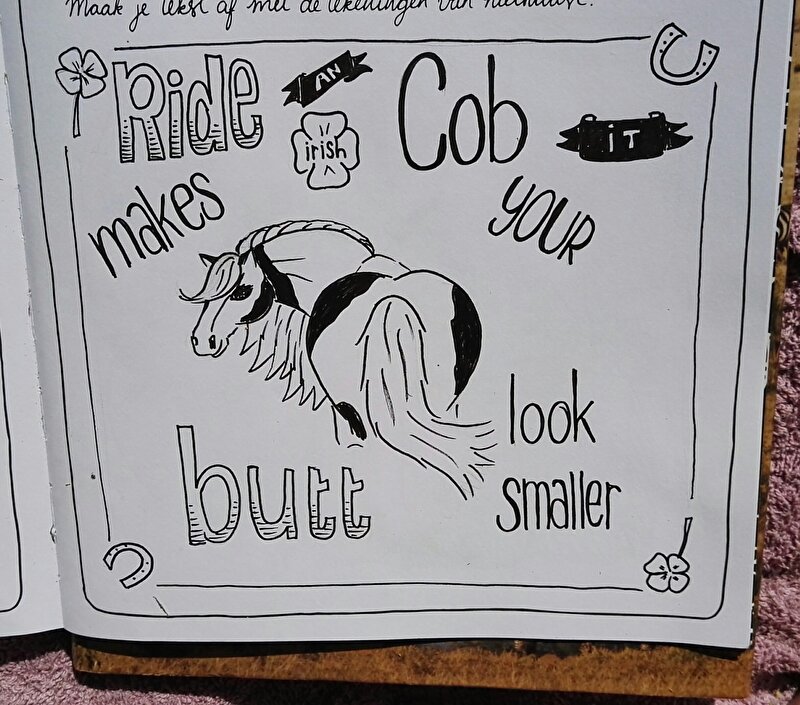 Maak je tekst af met de tekeningen van hiernaast.
Ride AN irish Cob iT
makes YOUR
butt look
smaller